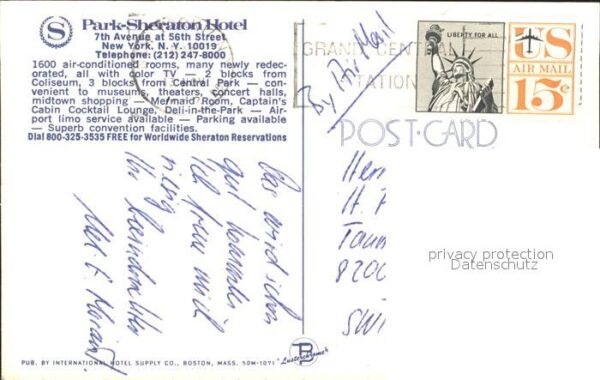 S
Park-Sheraton Hotel
7th Avenue at 56th Street
New York, N. Y. 10019
Telephone: (212) 247-8000
1600 air-conditioned rooms, many newly redec-
orated, all with color TV — 2 blocks from
Coliseum, 3 blocks from Central Park — con-
venient to museums, theaters, concert halls,
midtown shopping — Mermaid Room, Captain's
Cabin Cocktail Lounge, Deli-in-the-Park — Air-
port limo service available — Parking available
— Superb convention facilities.
Dial 800-325-3535 FREE for Worldwide Sheraton Reservations
GRAND CENTRAL
STATION
By Air Mail
LIBERTY FOR ALL
US
AIR MAIL
15¢
POST-CARD
Das wird schon
gut
Ich freue mich
riesig
Herr
H.
8200
privacy protection
Datenschutz
PUB. BY INTERNATIONAL HOTEL SUPPLY CO., BOSTON, MASS. 50M-1071
"Lusterchrome"